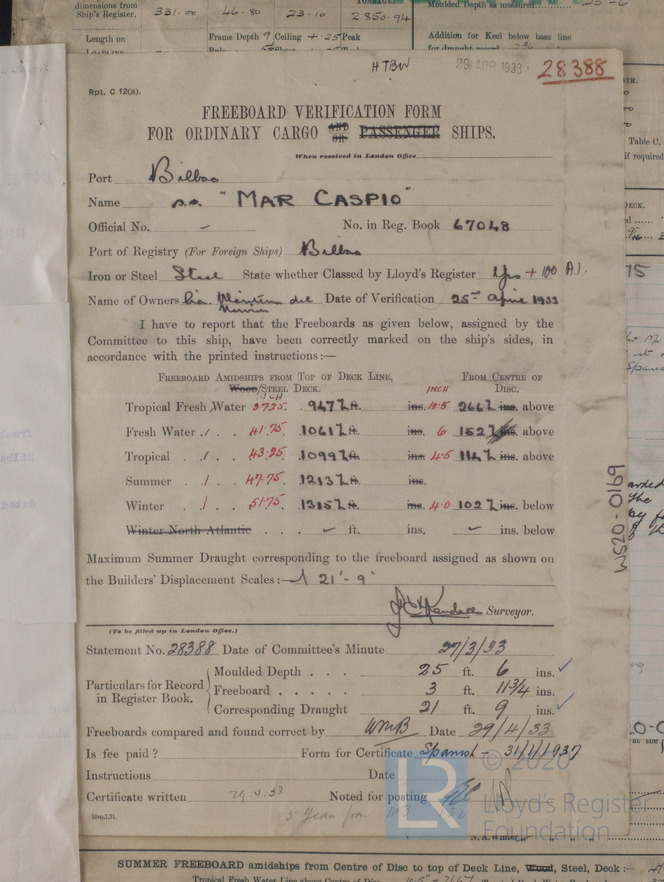 dimensions from
Ship's Register.
331.00
46.80
23.10
2850.94
Moulded Depth as measured
25-6
Length on
Frame Depth 9 Ceiling + .25 Peak
Addition for Keel below base line
for draught record
HTBW
29 APR 1933
28388
Rpt. C 12(a).
FREEBOARD VERIFICATION FORM
FOR ORDINARY CARGO AND OR PASSENGER SHIPS.
When received in London Office
Port Bilbao
Name s.s. "MAR CASPIO"
Official No. - No. in Reg. Book 67048
Port of Registry (For Foreign Ships) Bilbao
Iron or Steel Steel State whether Classed by Lloyd's Register Yes + 100 A1.
Name of Owners Cia. Maritima del Nervion Date of Verification 25th April 1933
I have to report that the Freeboards as given below, assigned by the
Committee to this ship, have been correctly marked on the ship's sides, in
accordance with the printed instructions:—
FREEBOARD AMIDSHIPS FROM TOP OF DECK LINE, FROM CENTRE OF
Wood/STEEL DECK. INCH DISC.
Tropical Fresh Water 37.25. 947 ft. ins. 10.5 266 ins. above
Fresh Water 41.75 1061 ft. ins. 6 152 ins. above
Tropical 43.25 1099 ft. ins. 4.5 114 ins. above
Summer 47.75 1213 ft. ins.
Winter 51.75 1315 ft. ins. 4.0 102 ins. below
Winter North Atlantic - ft. ins. - ins. below
Maximum Summer Draught corresponding to the freeboard assigned as shown on
the Builders' Displacement Scales:— 21'-9"
Kendall Surveyor.
(To be filled up in London Office.)
Statement No. 28388 Date of Committee's Minute 27/3/33
Particulars for Record in Register Book.
Moulded Depth 25 ft. 6 ins.
Freeboard 3 ft. 11 3/4 ins.
Corresponding Draught 21 ft. 9 ins.
Freeboards compared and found correct by WMB Date 29/4/33
Is fee paid? Form for Certificate Spanish - 31/1/1937
Instructions Date
Certificate written 29.4.33 Noted for posting
10m,7,31.
5 Years from
WS20-0169
LR
© 2020
Lloyd's Register
Foundation
SUMMER FREEBOARD amidships from Centre of Disc to top of Deck Line, Wood, Steel, Deck:—
Tropical Fresh Water Line above Centre of Disc